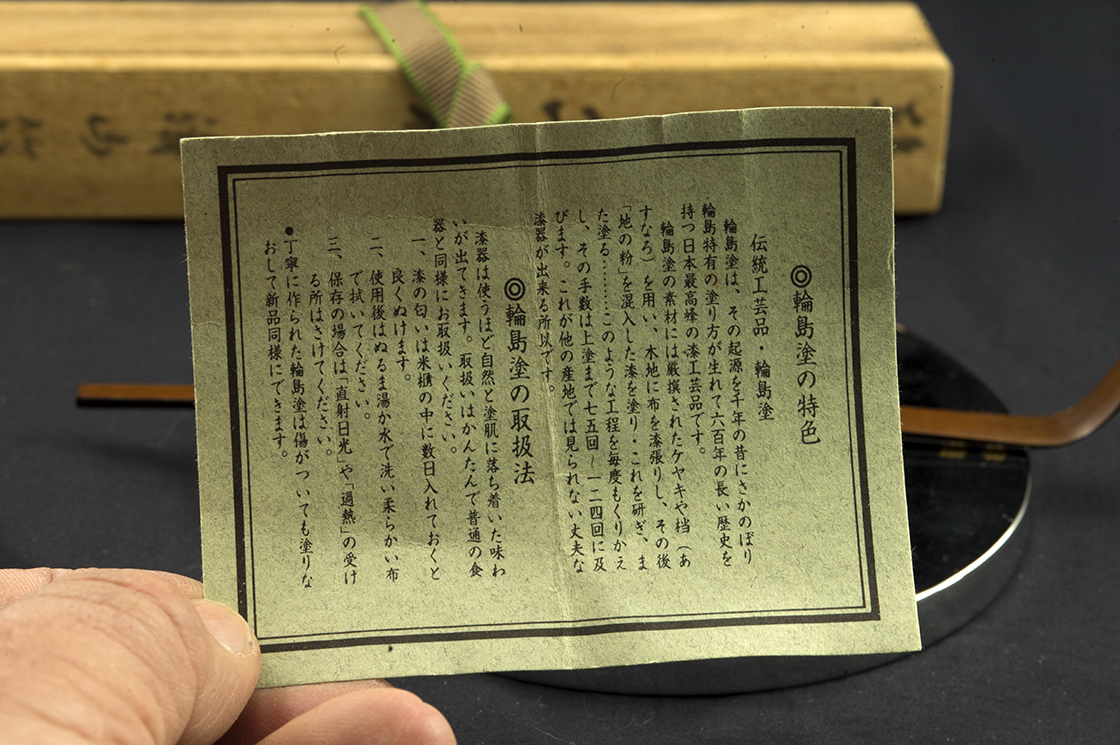 ◎輪島塗の特色
伝統工芸品・輪島塗
輪島塗は、その起源を千年の昔にさかのぼり
輪島特有の塗り方が生れて六百年の長い歴史を
持つ日本最高峰の漆工芸品です。
輪島塗の素材には厳撰されたケヤキや档（あ
すなろ）を用い、木地に布を漆張りし、その後
「地の粉」を混入した漆を塗り・これを研ぎ、ま
た塗る………このような工程を毎度もくりかえ
し、その手数は上塗まで七五回～一二四回に及
びます。これが他の産地では見られない丈夫な
漆器が出来る所以です。
◎輪島塗の取扱法
漆器は使うほど自然と塗肌に落ち着いた味わ
いが出てきます。取扱いはかんたんで普通の食
器と同様にお取扱いください。
一、漆の匂いは米櫃の中に数日入れておくと
良くぬけます。
二、使用後はぬるま湯か水で洗い柔らかい布
で拭いてください。
三、保存の場合は「直射日光」や「過熱」の受け
る所はさけてください。
●丁寧に作られた輪島塗は傷がついても塗りな
おして新品同様にできます。